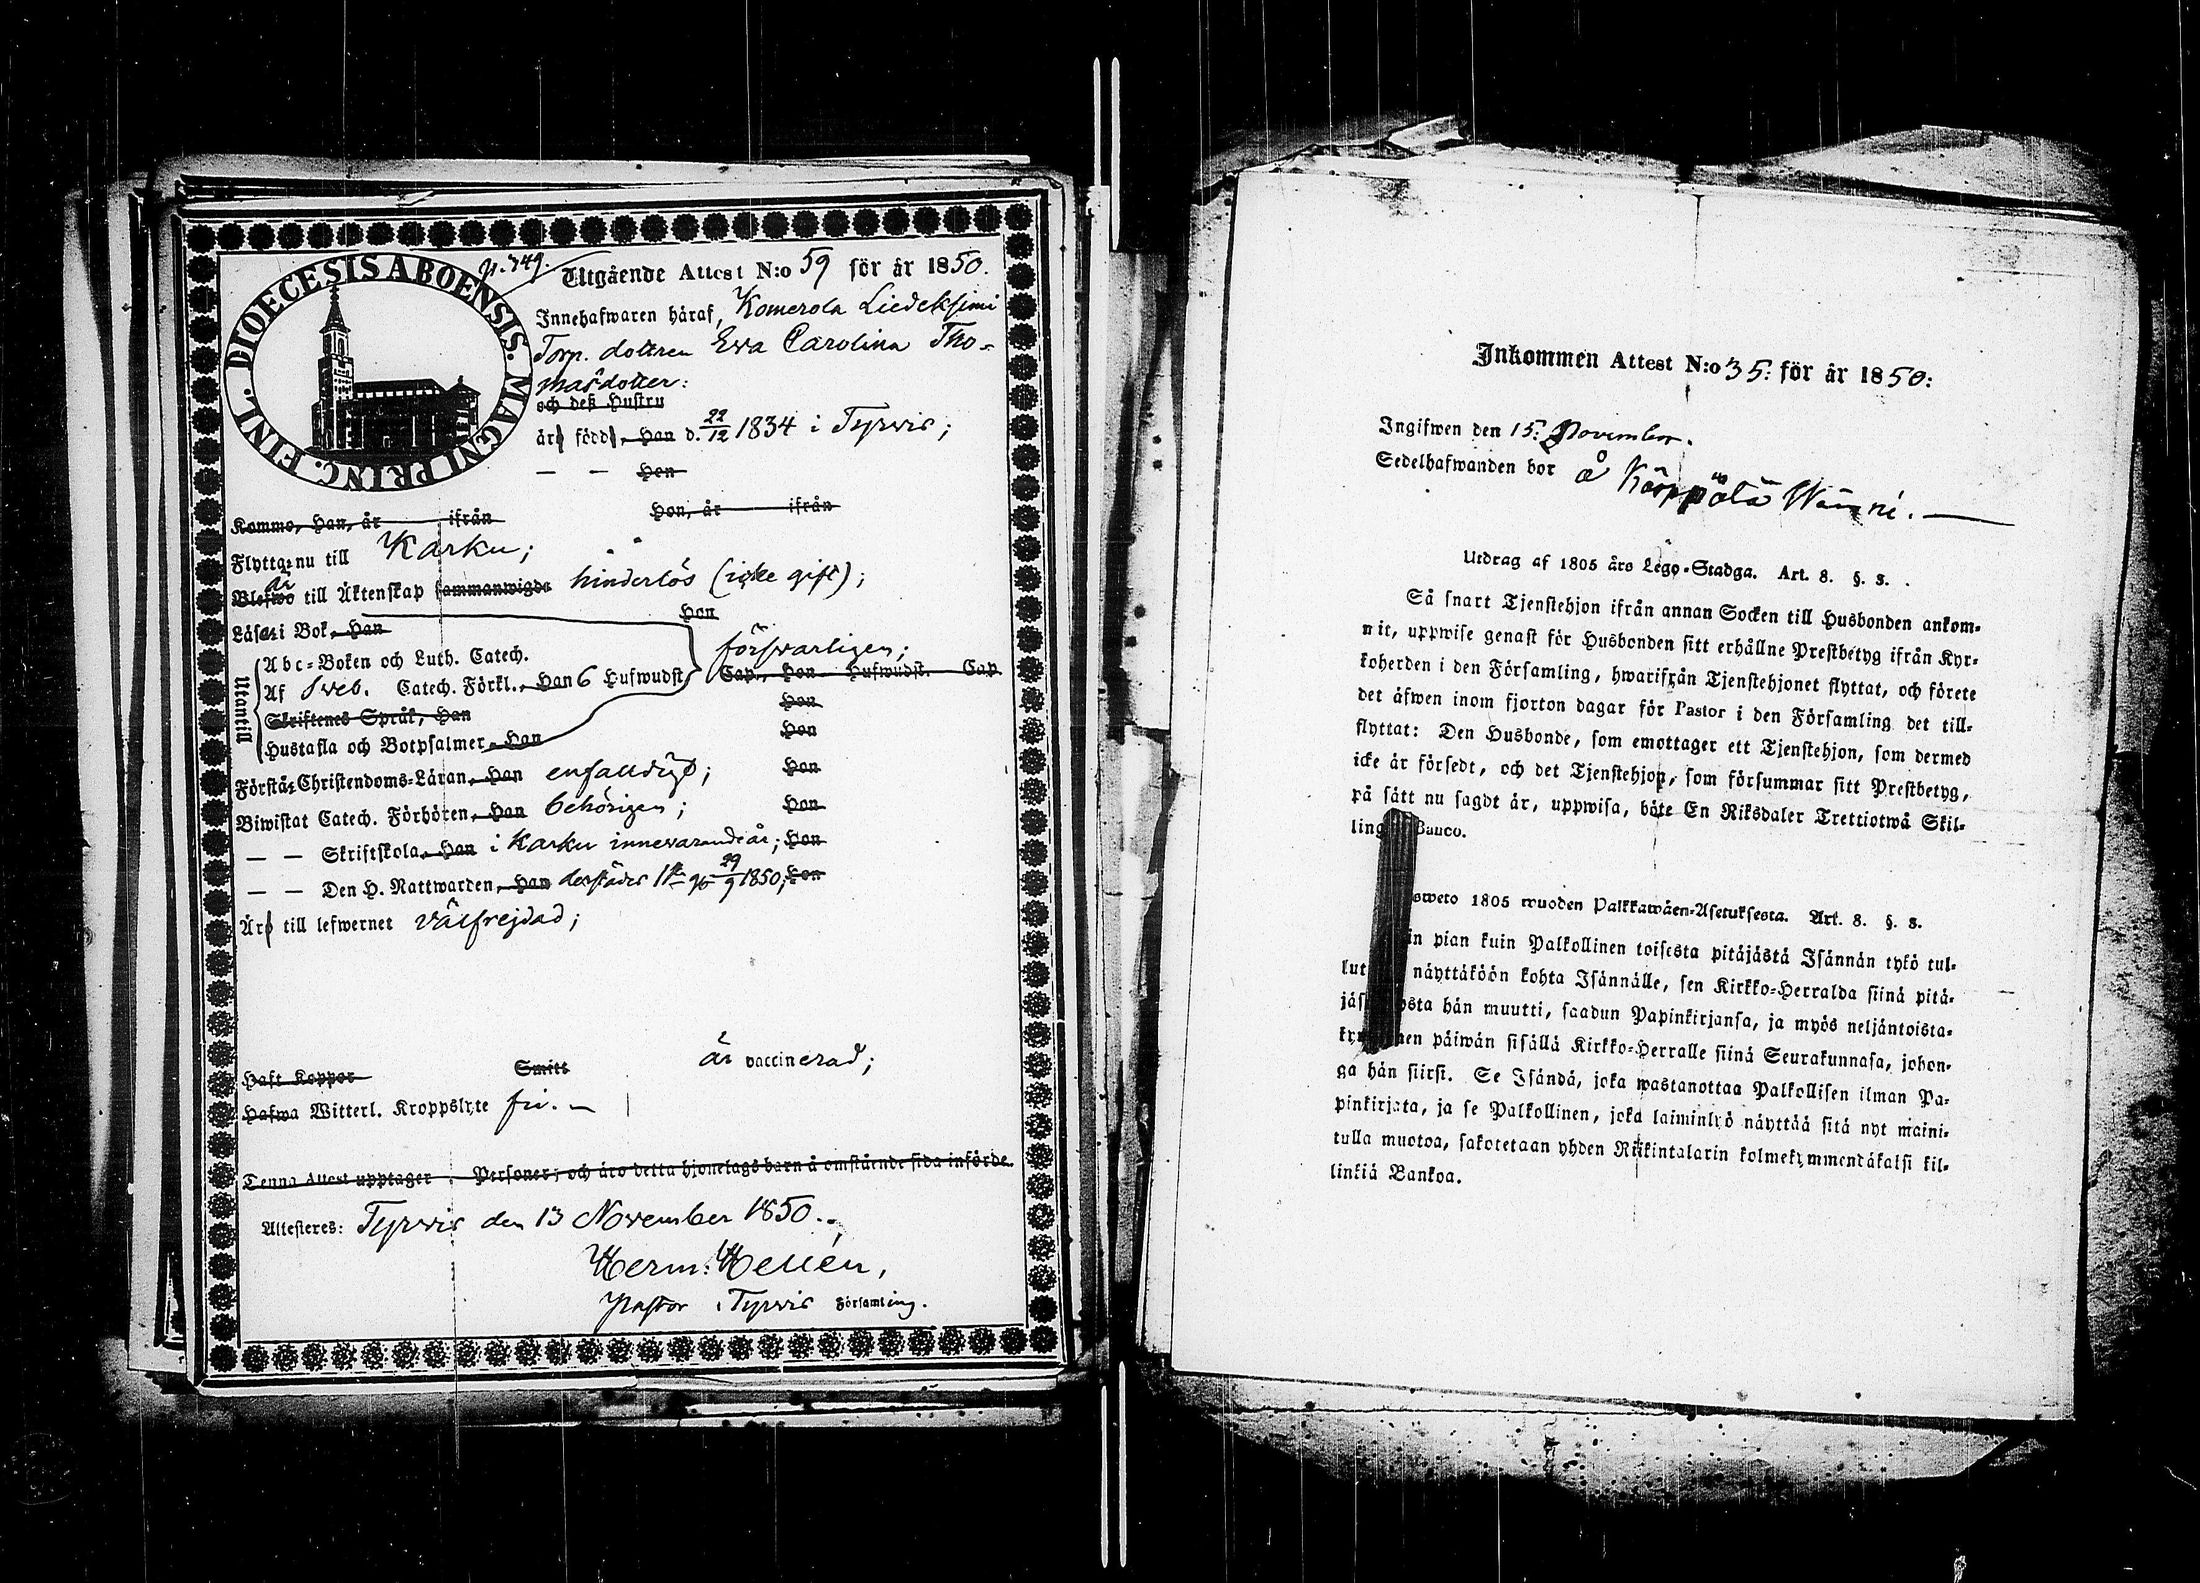 DIOECESIS ABOENSIS. MAGNI PRINC. FINL.
p. 749.
Utgående Attest N:o 59 för år 1850.
Innehafwaren häraf, Komerola Liedeksimi
Torp. dottren Eva Carolina Tho-
masdotter:
och deß Hustru
är född, Han d. 22/12 1834 i Tyrvis;
— — Hon
Kommo, Han, år ifrån Hon, år ifrån
Flyttar nu till Karku;
är
Blefwo till Äktenskap sammanwigde hinderlös (icke gift);
Läser i Bok, Han Hon
Utantill
Abc-Boken och Luth. Catech. försvarligen;
Af Sveb. Catech. Förkl., Han 6 Hufwudst. Cap., Hon Hufwudst. Cap.
Skriftenes Språk, Han Hon
Hustafla och Botpsalmer, Han Hon
Förstår Christendoms-Läran, Han enfaldigt; Hon
Biwistat Catech. Förhören, Han behörigen; Hon
— — Skriftskola, Han i Karku innevarande år; Hon
— — Den H. Nattwarden, Han derstädes 29/9 1850; Hon
Är till lefwernet välfrejdad;
Haft Koppor Smitt är vaccinerad;
Hafwa Witterl. Kroppslyte fri. —
Denna Attest upptager Personer, och äro detta hjonelags barn å omstående sida införde.
Attesteres: Tyrvis den 13 November 1850.
Herm: Hellén,
Pastor i Tyrvis Församling.
Inkommen Attest N:o 35: för år 1850:
Ingifwen den 15: November.
Sedelhafwanden bor å Käppälä Wänni. —
Utdrag af 1805 års Lego-Stadga. Art. 8. §. 3.
Så snart Tjenstehjon ifrån annan Socken till Husbonden ankom-
mit, uppwise genast för Husbonden sitt erhållne Prestbetyg ifrån Kyr-
koherden i den Församling, hwarifrån Tjenstehjonet flyttat, och förete
det äfwen inom fjorton dagar för Pastor i den Församling det till-
flyttat: Den Husbonde, som emottager ett Tjenstehjon, som dermed
icke är försedt, och det Tjenstehjon, som försummar sitt Prestbetyg,
på sätt nu sagdt är, uppwisa, böte En Riksdaler Trettiotwå Skil-
ling Banco.
sweto 1805 wuoden Palkkawäen-Asetuksesta. Art. 8. §. 3.
in pian kuin Palkollinen toisesta pitäjästä Isännän tykö tul-
lut näyttäköön kohta Isännälle, sen Kirkko-Herralda siinä pitä-
jäs osta hän muutti, saadun Papinkirjansa, ja myös neljäntoista-
ky nen päiwän sisällä Kirkko-Herralle siinä Seurakunnasa, johon-
ga hän siirsi. Se Isändä, joka wastanottaa Palkollisen ilman Pa-
pinkirjata, ja se Palkollinen, joka laiminlyö näyttää sitä nyt maini-
tulla muotoa, sakotetaan yhden Riikintalarin kolmekymmendäkaksi kil-
linkiä Bankoa.